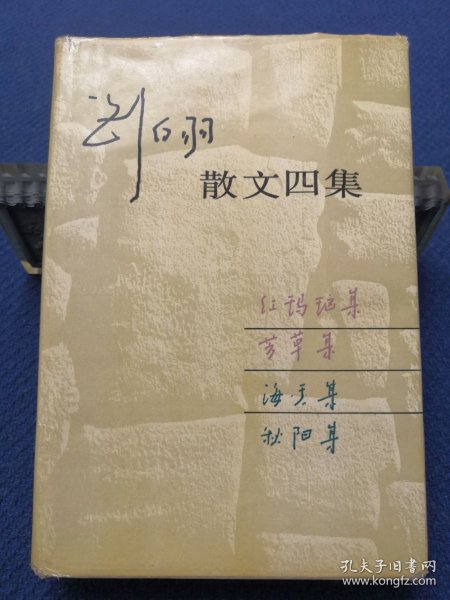 刘白羽
散文四集
红玛瑙集
芳草集
海天集
秋阳集
孔夫子旧书网
www.kongfz.com